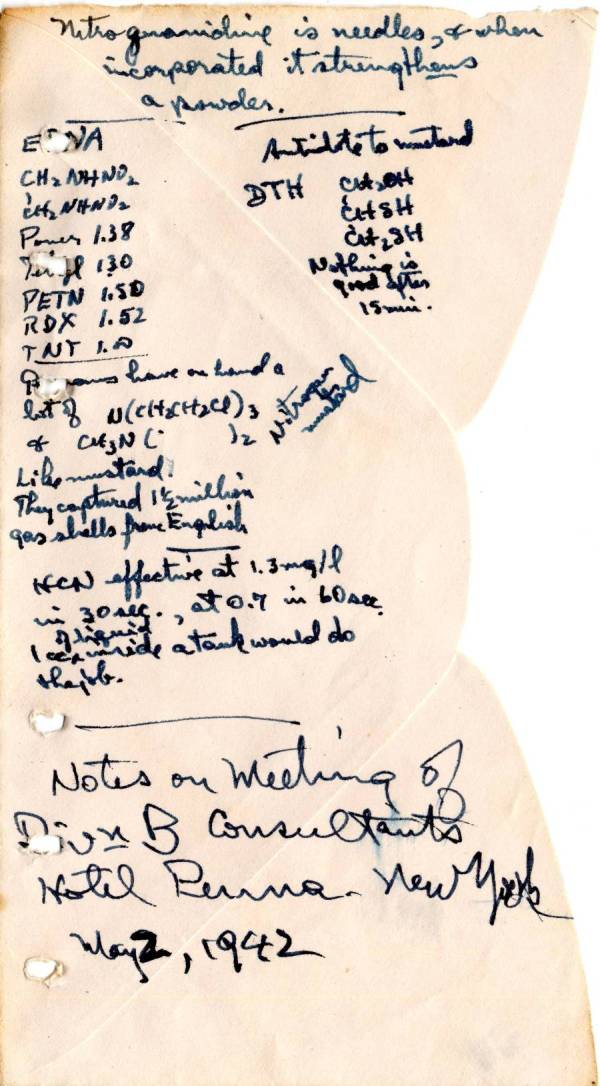 Nitroguanidine is needles, & when
incorporated it strengthens
a powder.
EDNA
CH2NHNO2
CH2NHNO2
Power 1.38
Tetryl 130
PETN 1.50
RDX 1.52
TNT 1.00
Antidote to mustard
DTH CH2OH
CHSH
CH2SH
Nothing is
good after
15 min.
Germans have on hand a
lot of N(CH2CH2Cl)3
& CH3N( )2
Nitrogen
mustard
Like mustard.
They captured 1½ million
gas shells from English
HCN effective at 1.3 mg/l
in 30 sec., at 0.7 in 60 sec.
of liquid
1 cc inside a tank would do
the job.
Notes on Meeting of
Divn B Consultants
Hotel Penna. New York
May 2, 1942